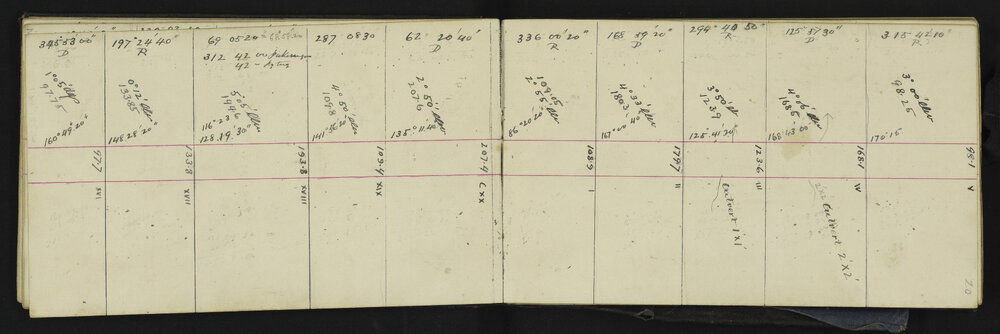 345°53'00"
D
1°05' elev
97.75
160°49'20"
97.7
XVI
197°24'40"
R
0°12' elev
133.85
148°28'20"
133.8
XVII
69 05 20
312 42
42
5°05' elev
194.6
116°23'
128.19'30"
193.8
XVIII
287 08 30
4°50' elev
109.8
141°35'20"
109.4
XIX
62 20'40"
D
2°50' elev
207.6
135°11.40"
207.4
CXX
336 00'20"
R
109.05
2°55' elev
86°20'20"
108.9
I
168 59 20"
D
4°33' elev
180.3
167°00'40"
179.7
II
294° 40 50"
R
3°50' elev
123.9
125°41'20
123.6
III
culvert 1'x1'
125°57'30"
D
4°06' elev
168.5
168 43 00
168.1
IV
Culvert 2'x2'
315°42'10"
R
3°00' elev
98.25
170°15
98.1
V
20